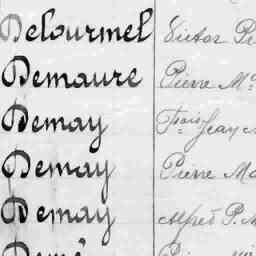 Delourmel Victor Pe
Demaure Pierre M
Demay Fçois Jean
Demay Pierre Ma
Demay Alfred P. M